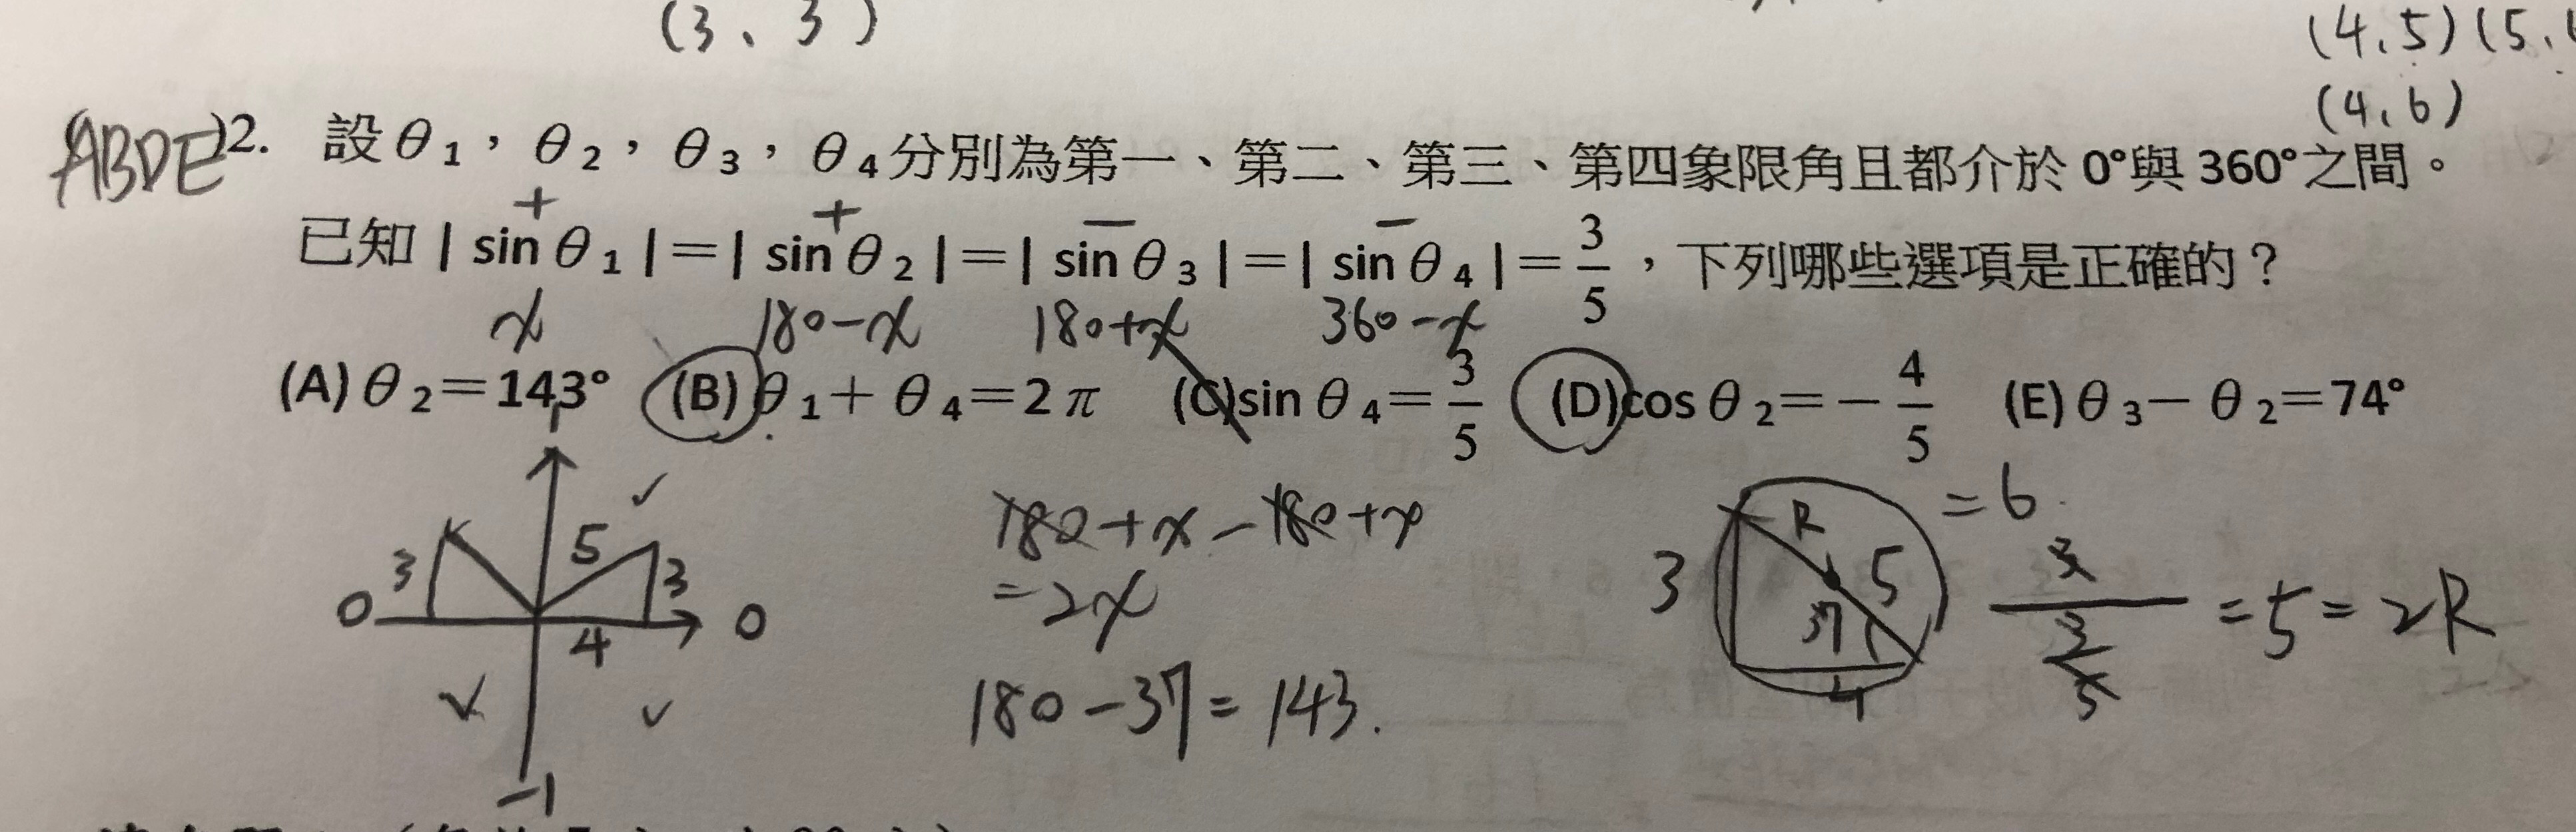 (3、3)
(4,5)(5,
(4,6)
(ABDE)2. 設θ1，θ2，θ3，θ4分別為第一、第二、第三、第四象限角且都介於 0°與 360°之間。
+ + − −
已知｜sinθ1｜＝｜sinθ2｜＝｜sinθ3｜＝｜sinθ4｜＝3/5，下列哪些選項是正確的？
x 180−x 180+x 360−x
(A)θ2＝143° (B)θ1＋θ4＝2π (C)sinθ4＝3/5 (D)cosθ2＝−4/5 (E)θ3−θ2＝74°
1
3 5 3
0 4 0
-1
180+x−180+x
=2x
180−37=143.
=6
3 R 5
37
4
3/(3/5) =5=2R